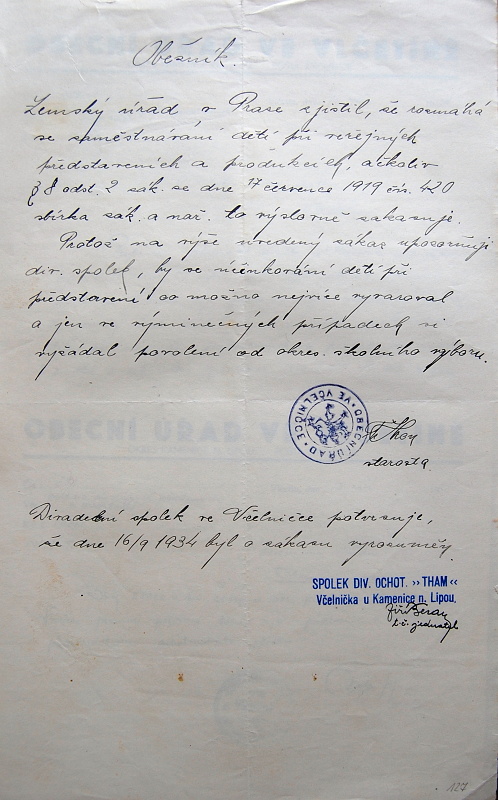 Oběžník.
Zemský úřad v Praze zjistil, že rozmáhá
se zaměstnávání dětí při veřejných
představeních a produkcích, ačkoliv
§ 8 odst. 2 zák. ze dne 17 července 1919 čís. 420
sbírka zák. a nař. to výslovně zakazuje.
Protož na výše uvedený zákaz upozorňuji
div. spolek, by se účinkování dětí při
představení co možno nejvíce vyvaroval
a jen ve výminečných případech si
vyžádal povolení od okres. školního výboru.
OBECNÍ ÚŘAD VE VČELNIČCE
starosta
Divadelní spolek ve Včelničce potvrzuje,
že dne 16/9 1934 byl o zákazu vyrozuměn.
SPOLEK DIV. OCHOT. ›› THAM ‹‹
Včelnička u Kamenice n. Lipou.
Jiří Beran
t.č. jednatel
127